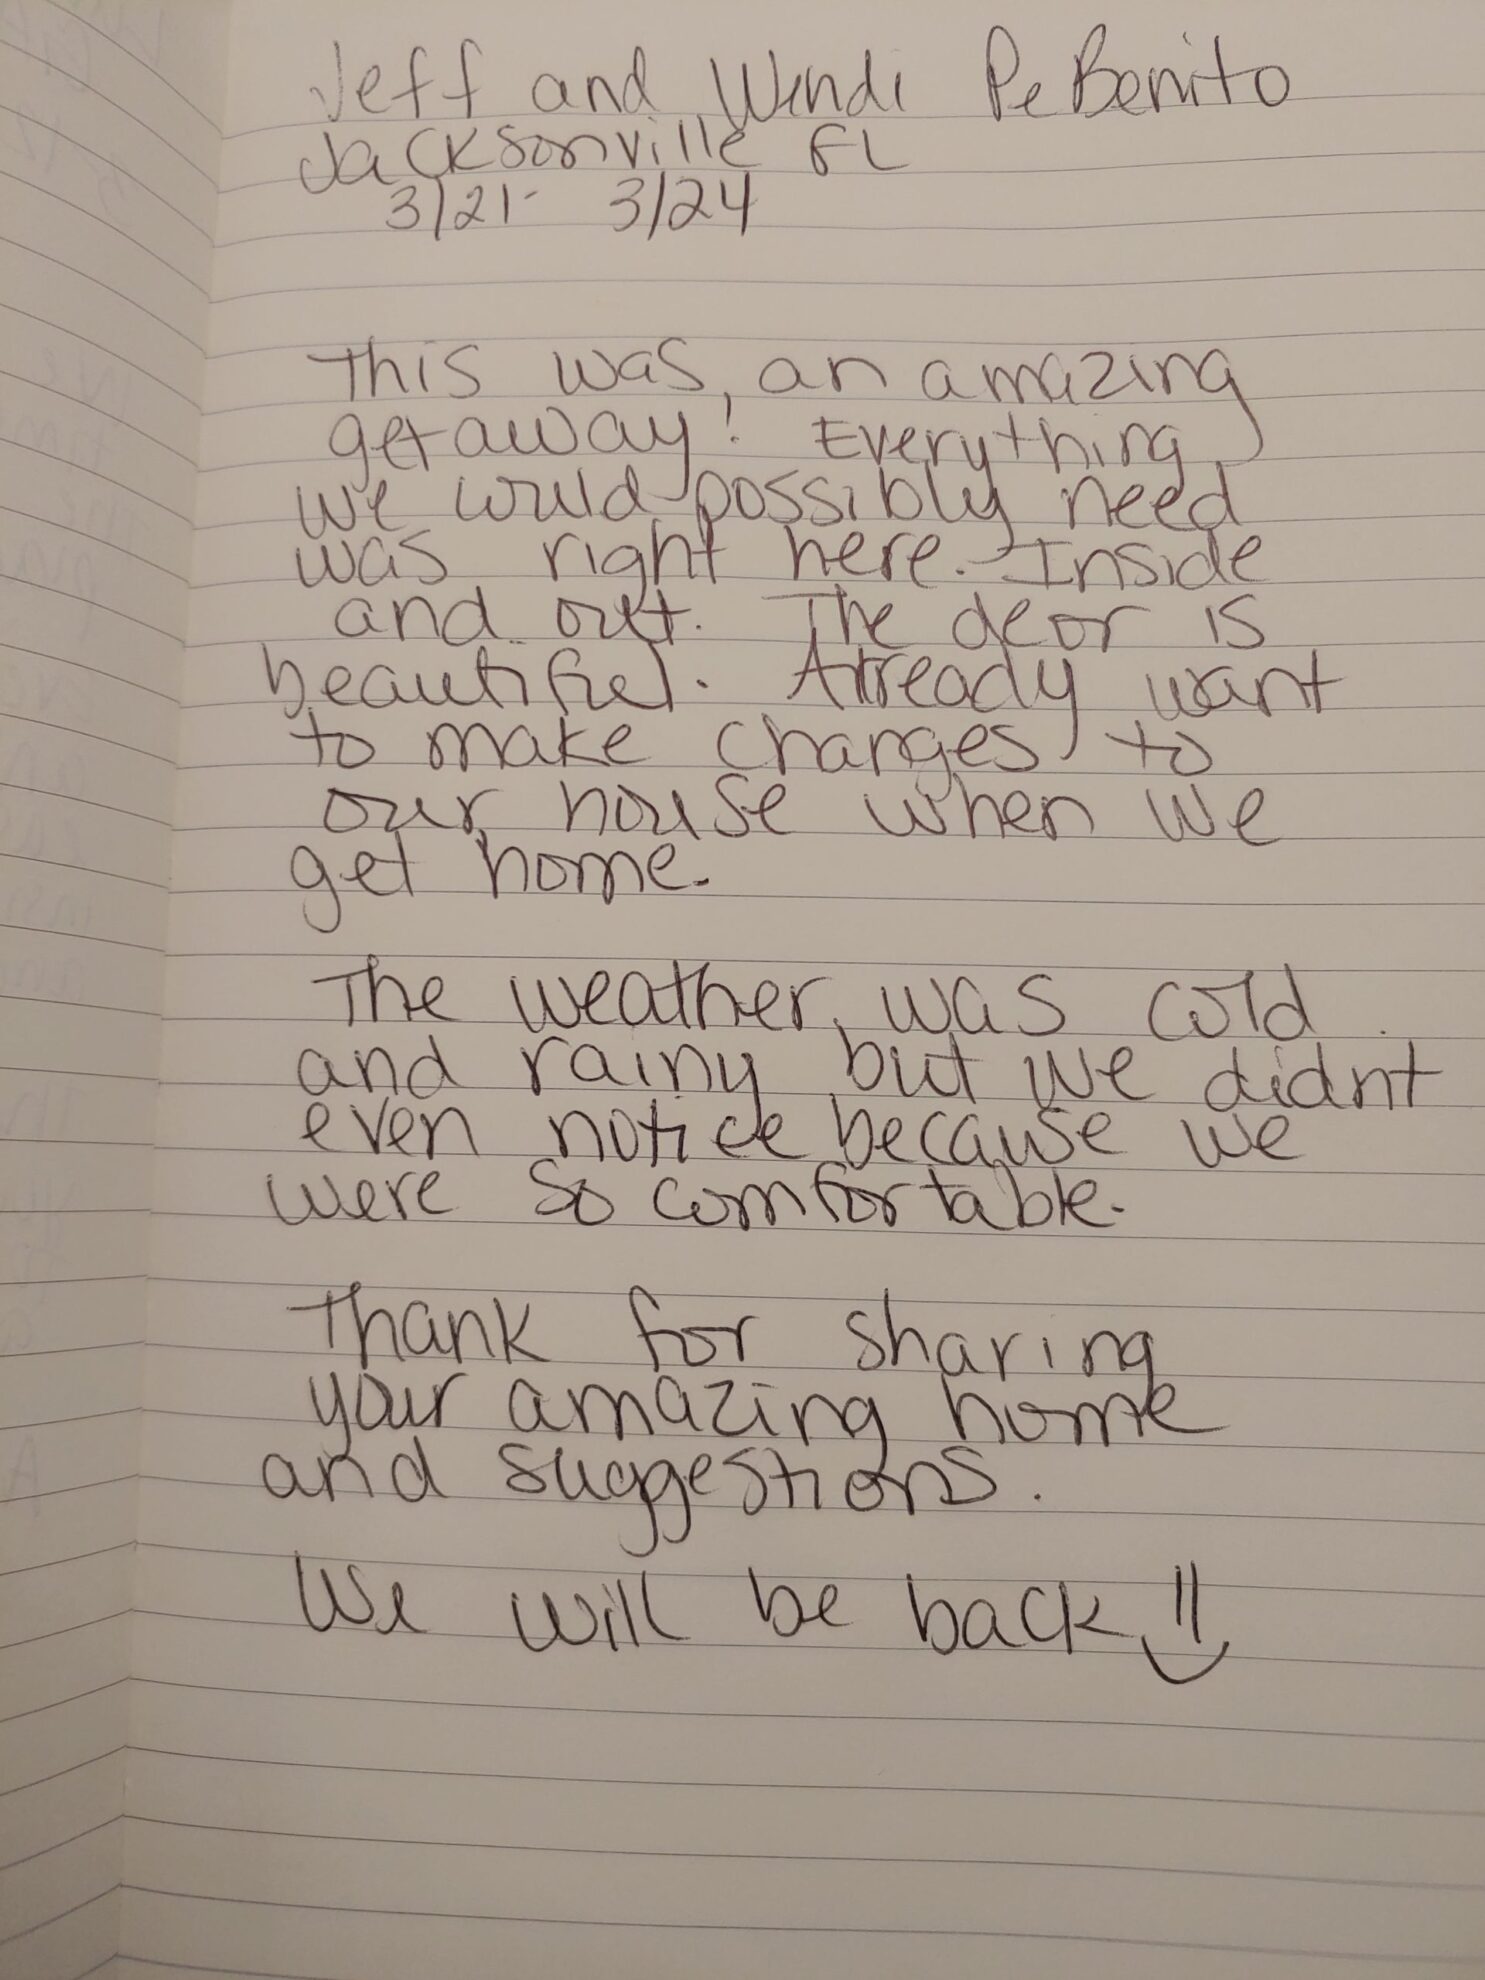 Jeff and Wendi PeBenito
Jacksonville FL
3/21- 3/24
This was an amazing
getaway! Everything
we would possibly need
was right here. Inside
and out. The deor is
beautiful. Already want
to make changes to
our house when we
get home.
The weather was cold
and rainy but we didnt
even notice because we
were so comfortable.
Thank for sharing
your amazing home
and suggestions.
We will be back!!